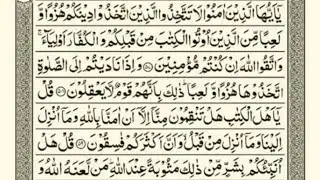 يٰۤاَيُّهَا الَّذِيْنَ اٰمَنُوْا لَا تَتَّخِذُوا الَّذِيْنَ اتَّخَذُوْا دِيْنَكُمْ هُزُوًا وَّ
لَعِبًا مِّنَ الَّذِيْنَ اُوْتُوا الْكِتٰبَ مِنْ قَبْلِكُمْ وَ الْكُفَّارَ اَوْلِيَآءَ ۚ
وَ اتَّقُوا اللّٰهَ اِنْ كُنْتُمْ مُّؤْمِنِيْنَ ۝۵۷ وَ اِذَا نَادَيْتُمْ اِلَى الصَّلٰوةِ
اتَّخَذُوْهَا هُزُوًا وَّ لَعِبًا ؕ ذٰلِكَ بِاَنَّهُمْ قَوْمٌ لَّا يَعْقِلُوْنَ ۝۵۸ قُلْ
يٰۤاَهْلَ الْكِتٰبِ هَلْ تَنْقِمُوْنَ مِنَّاۤ اِلَّاۤ اَنْ اٰمَنَّا بِاللّٰهِ وَ مَاۤ اُنْزِلَ
اِلَيْنَا وَ مَاۤ اُنْزِلَ مِنْ قَبْلُ ۙ وَ اَنَّ اَكْثَرَكُمْ فٰسِقُوْنَ ۝۵۹ قُلْ هَلْ
اُنَبِّئُكُمْ بِشَرٍّ مِّنْ ذٰلِكَ مَثُوْبَةً عِنْدَ اللّٰهِ ؕ مَنْ لَّعَنَهُ اللّٰهُ وَ